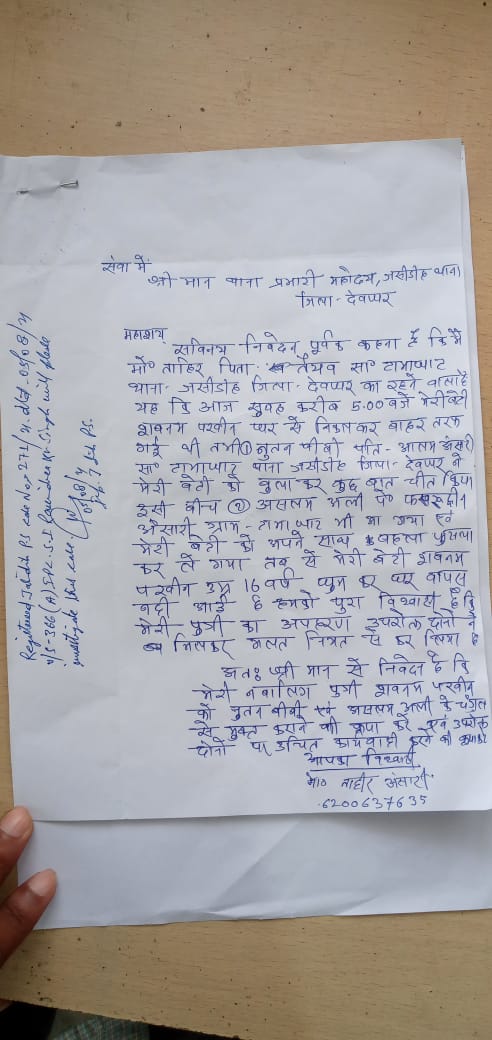 सेवा में
श्री मान थाना प्रभारी महोदय, जसीडीह थाना
जिला - देवघर
महाशय
सविनय निवेदन पूर्वक कहना है कि मैं
मो० ताहिर पिता - तैयव सा० टाभाघाट
थाना - जसीडीह जिला - देवघर का रहने वाला हूँ
यह कि आज सुवह करीब 5.00 बजे मेरी बेटी
शवनम परवीन घर से निकलकर बाहर तरफ
गई थी तभी ① नुतन बीबी पति - आलम अंसारी
सा० टाभाघाट थाना जसीडीह जिला - देवघर ने
मेरी बेटी को बुला कर कुछ बात चीत किया
इसी बीच ② असलम अली पे०
अंसारी ग्राम - टाभाघाट भी आ गया एवं
मेरी बेटी को अपने साथ बहला फुसला
कर ले गया तब से मेरी बेटी शवनम
परवीन उम्र 16 वर्ष घुम कर घर वापस
नही आई है हमको पुरा विश्वास है कि
मेरी पुत्री का अपहरण उपरोक्त दोनो ने
मिलकर गलत नियत से कर लिया है
अतः श्री मान से निवेदन है कि
मेरी नवालिग पुत्री शवनम परवीन
को नुतन बीबी एवं असलम अली के चंगुल
से मुक्त कराने की कृपा करें एवं उपरोक्त
दोनो पर उचित कार्यवाही करने की कृपा करें
आपका विश्वासी
मो० ताहीर अंसारी
6200637635
Registered Jasidih PS case No. 271/21 dtd. 03/08/21
u/s - 366(A) IPC. S.I Ravindra Kr. Singh will please
investigate this case